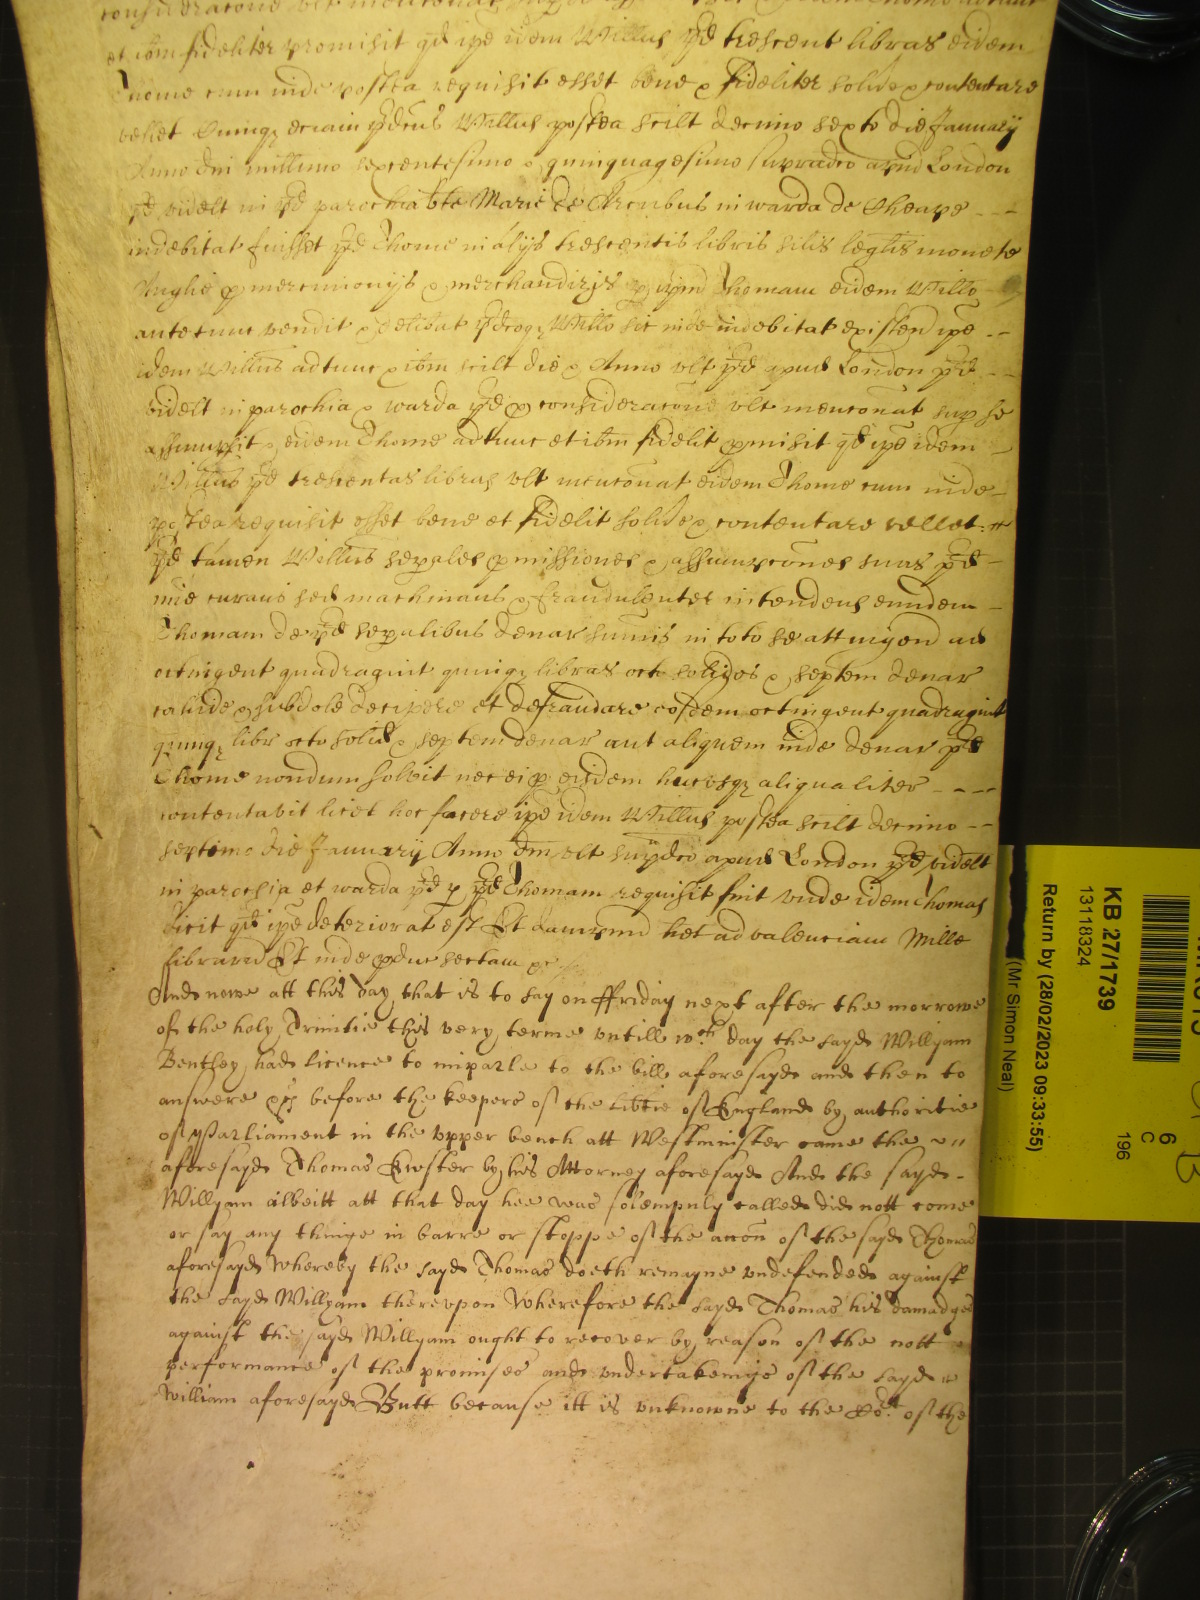 et ib̃m fideliter promisit qd ip̃e idem Willus p̃d trescent libras eidem
Thome cum inde postea requisit esset bene & fideliter solvere & contentare
vellet Cumq₃ eciam p̃dcus Willus postea scilt decimo sexto die January
Anno dni millimo sexcentesimo & quinquagesimo supradco apud London
p̃d videlt in p̃d parochia b̃te Marie de Arcubus in warda de Cheape - - -
indebitat fuisset p̃d Thome in alijs trescentis libris silis leglis monete
Anglie p mercimonijs & merchandizis p ip̃m Thomam eidem Willo
ante tunc vendit & delibat p̃dcoq₃ Willo sic inde indebitat existen ip̃e - -
idem Willus adtunc & ib̃m scilt die & Anno ult p̃d apud London p̃d - - -
videlt in parochia & warda p̃d p consideracone ult menconat sup se
assumpsit & eidem Thome adtunc et ib̃m fidelit p̱misit qd ip̃e idem -
Willus p̃d trescentas libras ult menconat eidem Thome cum inde -
postea requisit esset bene et fidelit solvere & contentare vellet
p̃d tamen Willus sep̱ales p̱missiones & assumpcones suas p̃d -
mie curans sed machinans & fraudulenter intendens eundem -
Thomam de p̃d sep̱alibus denar summis in toto se attingend ad
octingent quadragint quinq₃ libras octo solidos & septem denar
callide & subdole decipere et defraudare eosdem octingent quadragint
quinq₃ libr octo solid & septem denar aut aliquem inde denar p̃d
Thome nondum solvit nec ei p eisdem hucusq₃ aliqualiter - - - -
contentavit licet hoc facere ip̃e idem Willus postea scilt decimo - -
septimo die January Anno dni ult sup̱dco apud London p̃d videlt
in parochia et warda p̃d p p̃d Thomam requisit fuit unde idem Thomas
dicit qd ip̃e deteriorat est Et dampnu het ad valenciam Mille
libraru Et inde p̱duc sectam &c
And nowe att this day that is to say on ffriday next after the morrowe
of the holy Trinitie this very terme untill wch day the sayd Willyam
Bentley had licence to imparle to the bill aforesayd and then to
answere &c before the keepers of the lib̃tie of England by authoritie
of Parliament in the upper bench att Westminister came the
aforesayd Thomas Ewster by his Attorney aforesayd And the sayd -
Willyam albeitt att that day hee was solempnly called did nott come
or say any thinge in barre or stoppe of the accon of the sayd Thomas
aforesayd Whereby the sayd Thomas doeth remayne undefended against
the sayd Willyam thereupon Wherefore the sayd Thomas his damadges
against the sayd Willyam ought to recover by reason of the nott
performance of the promises and undertakeings of the sayd
William aforesayd Butt because itt is unknowne to the Cort of the
KB 27/1739
13118324
Return by (28/02/2023 09:33:55)
(Mr Simon Neal)
196
6
C
B